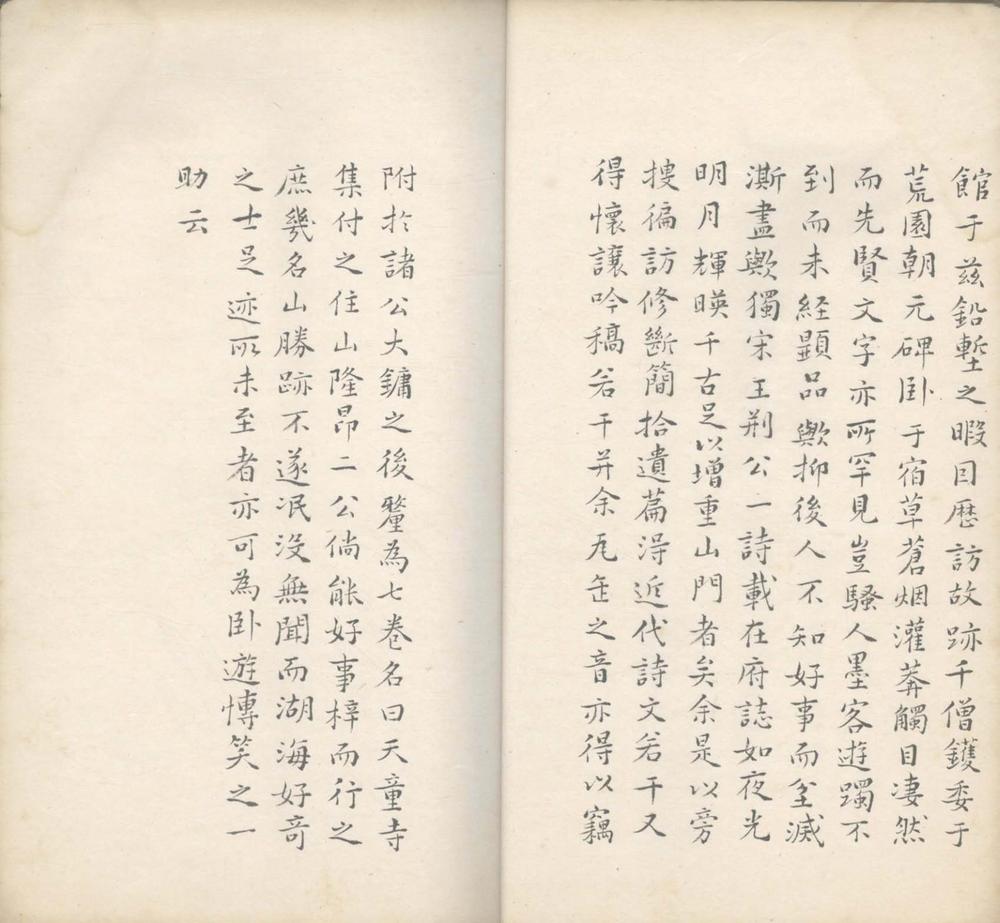 館于茲鉛槧之暇因歷訪故跡千僧鑊委于
荒園朝元碑卧于宿草蒼烟灌莽觸目凄然
而先賢文字亦所罕見豈騷人墨客遊躅不
到而未經顯品歟抑後人不知好事而至滅
澌盡歟獨宋王荆公一詩載在府誌如夜光
明月輝暎千古足以增重山門者矣余是以旁
搜徧訪修斷簡拾遺篇淂近代詩文若干又
得懷讓吟稿若干并余瓦缶之音亦得以竊
附扵諸公大鏞之後釐為七卷名曰天童寺
集付之住山隆昂二公倘能好事梓而行之
庶幾名山勝跡不遂泯没無聞而湖海好奇
之士足迹所未至者亦可為卧遊慱笑之一
助云